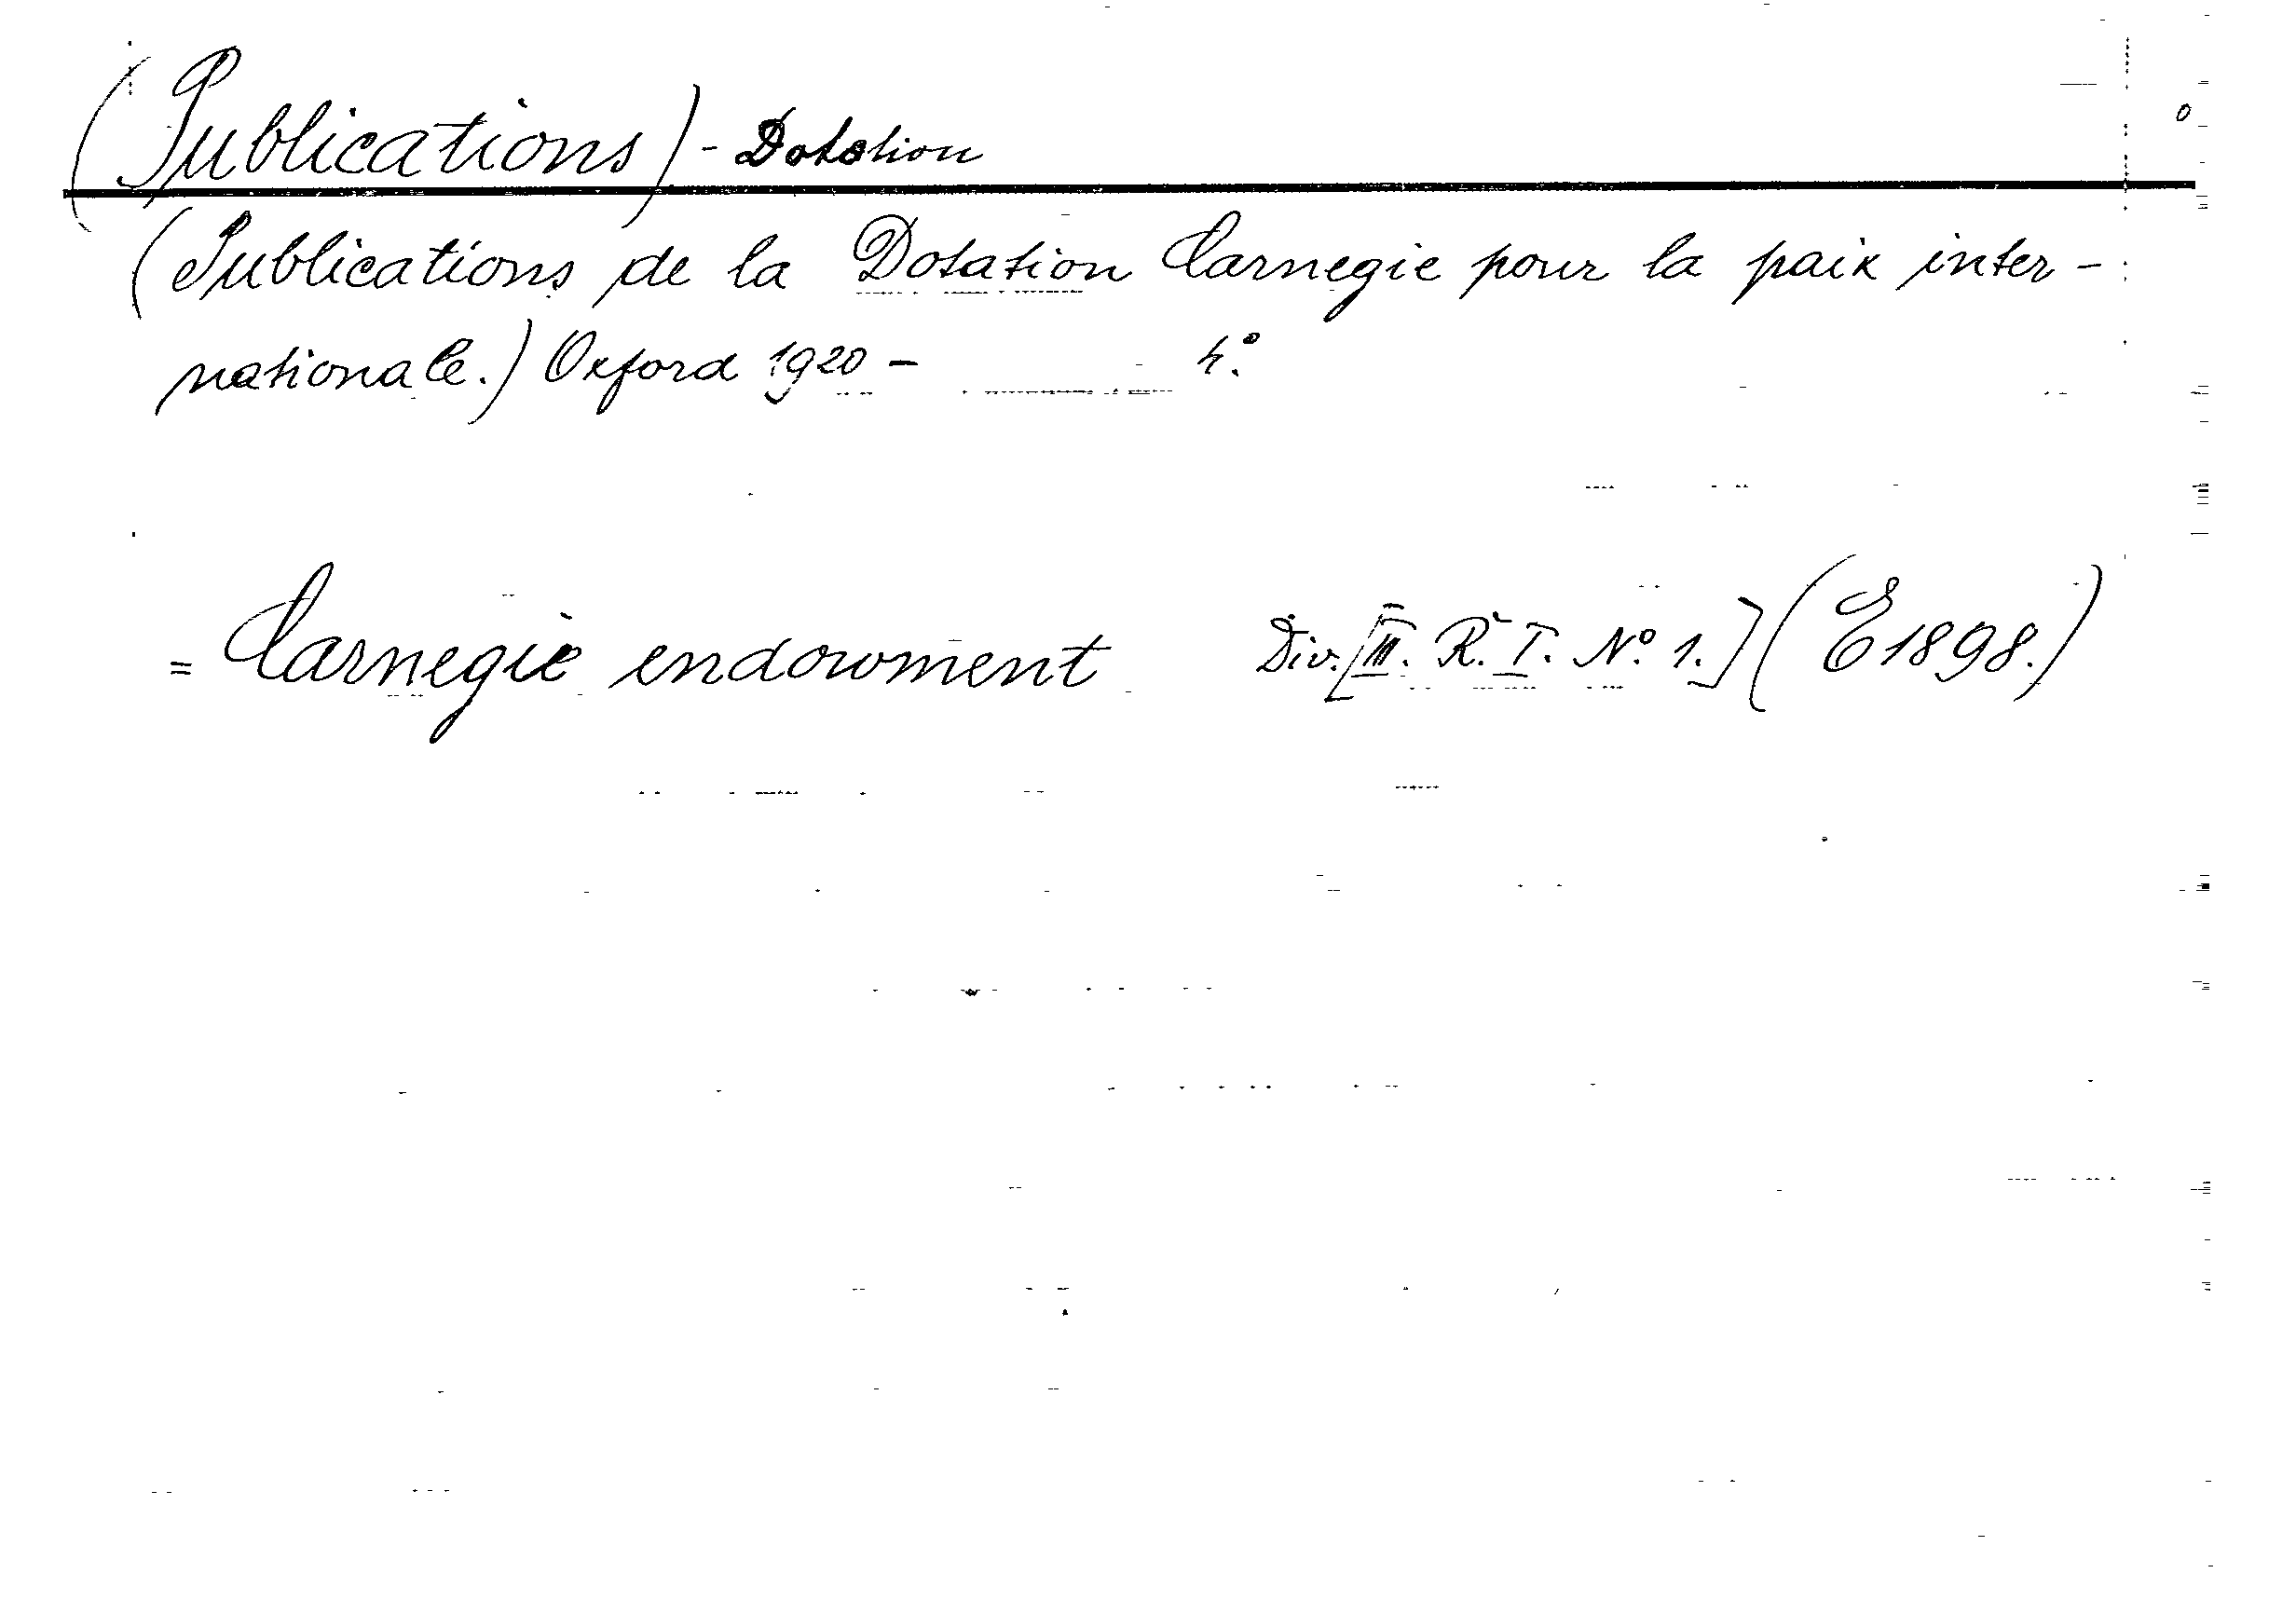 (Publications) - Dotation
(Publications de la Dotation Carnegie pour la paix inter-
nationale.) Oxford 1920 - 4º.
= Carnegie endowment Div. [III. R. I. Nº. 1.] (E 1898.)